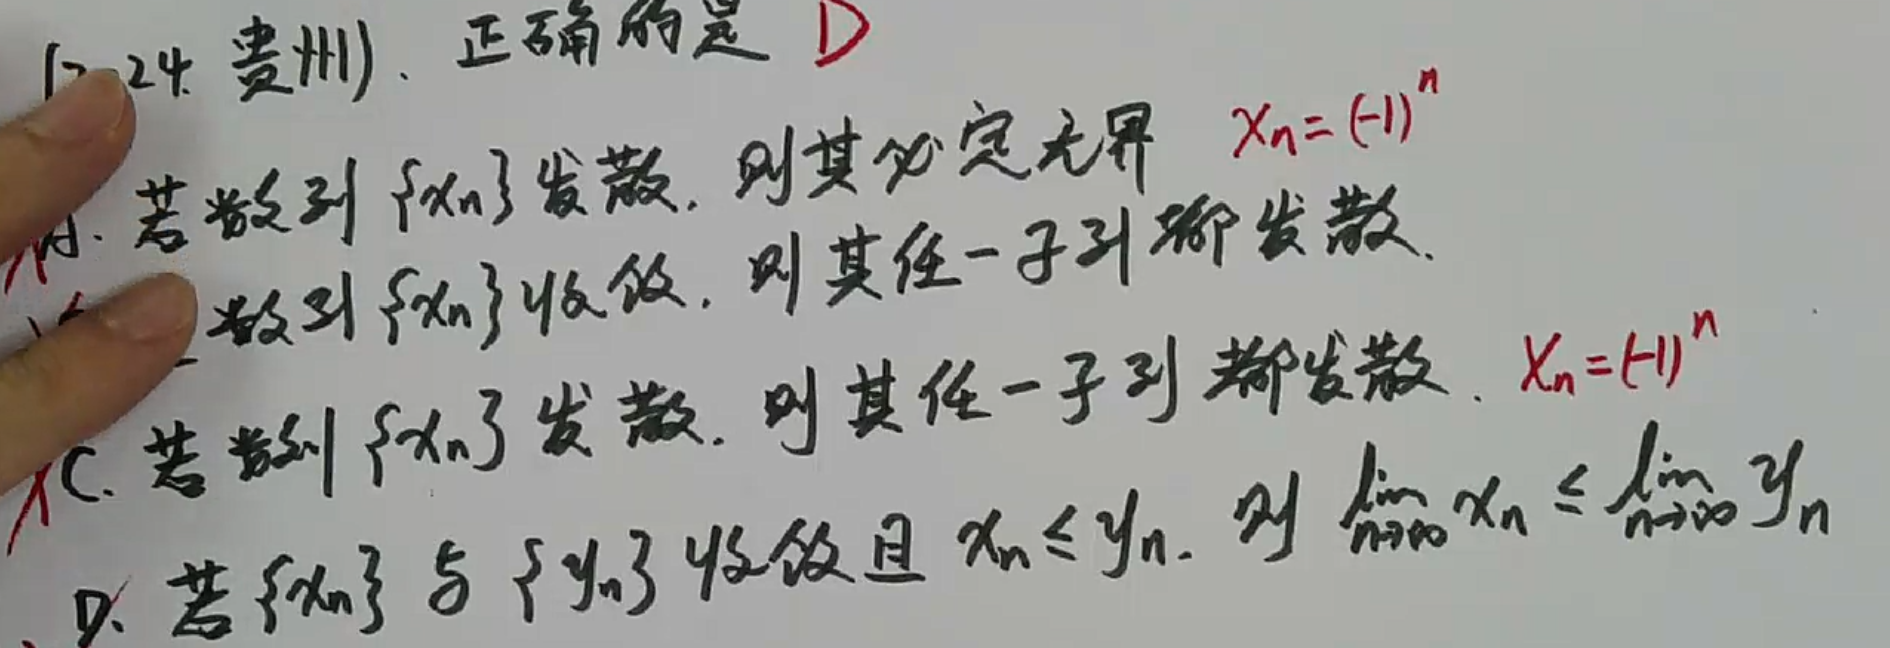 24. 贵州). 正确的是 D
A. 若数列 {xn} 发散. 则其必定无界 xn = (-1)^n
数列 {xn} 收敛. 则其任一子列都发散.
C. 若数列 {xn} 发散. 则其任一子列都发散. xn = (-1)^n
D. 若 {xn} 与 {yn} 收敛且 xn ≤ yn. 则 lim n→∞ xn ≤ lim n→∞ yn